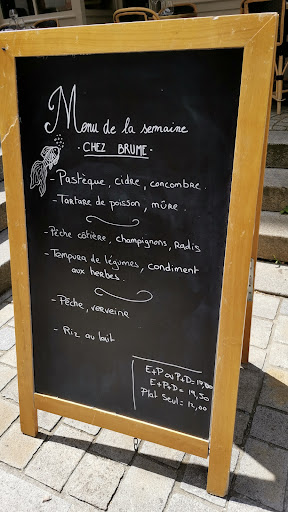 Menu de la semaine
. CHEZ BRUME .
- Pastèque, cidre, concombre.
- Tartare de poisson, mûre.
- Pêche côtière, champignons, Radis
- Tempura de légumes, condiment
aux herbes.
- Pêche, verveine
- Riz au lait
E+P ou P+D = 17,00
E+P+D = 19,50
Plat Seul = 12,00